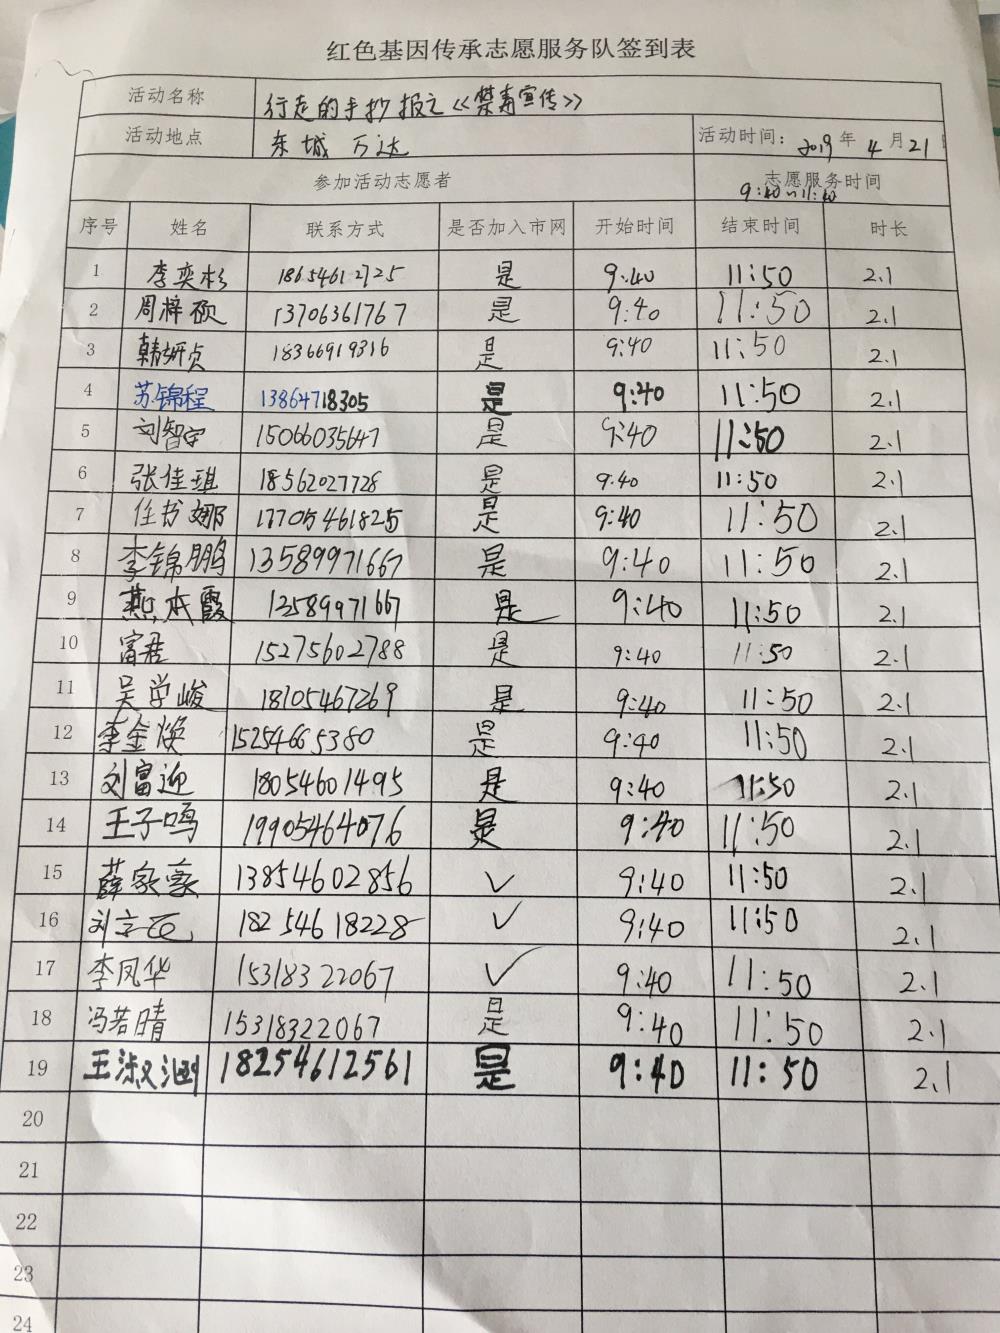 红色基因传承志愿服务队签到表
活动名称 行走的手抄报之《禁毒宣传》
活动地点 东城万达 活动时间: 2019 年 4 月 21
参加活动志愿者 志愿服务时间
9:40~11:40
序号 姓名 联系方式 是否加入市网 开始时间 结束时间 时长
1 李奕杉 18654612725 是 9:40 11:50 2.1
2 周梓硕 13706361767 是 9:40 11:50 2.1
3 韩妍贞 18366919316 是 9:40 11:50 2.1
4 苏锦程 13864718305 是 9:40 11:50 2.1
5 刘智宇 15066035647 是 9:40 11:50 2.1
6 张佳琪 18562027728 是 9:40 11:50 2.1
7 任书娜 17705461825 是 9:40 11:50 2.1
8 李锦鹏 13589971667 是 9:40 11:50 2.1
9 燕本霞 13589971667 是 9:40 11:50 2.1
10 富君 15275602788 是 9:40 11:50 2.1
11 吴学峻 18105467269 是 9:40 11:50 2.1
12 李金焕 15254665380 是 9:40 11:50 2.1
13 刘富迎 18054601495 是 9:40 11:50 2.1
14 王子鸣 19905464076 是 9:40 11:50 2.1
15 薛家豪 13854602856 ✓ 9:40 11:50 2.1
16 刘 18254618228 ✓ 9:40 11:50 2.1
17 李凤华 15318322067 ✓ 9:40 11:50 2.1
18 冯若晴 15318322067 是 9:40 11:50 2.1
19 王淑 18254612561 是 9:40 11:50 2.1
20
21
22
23
24